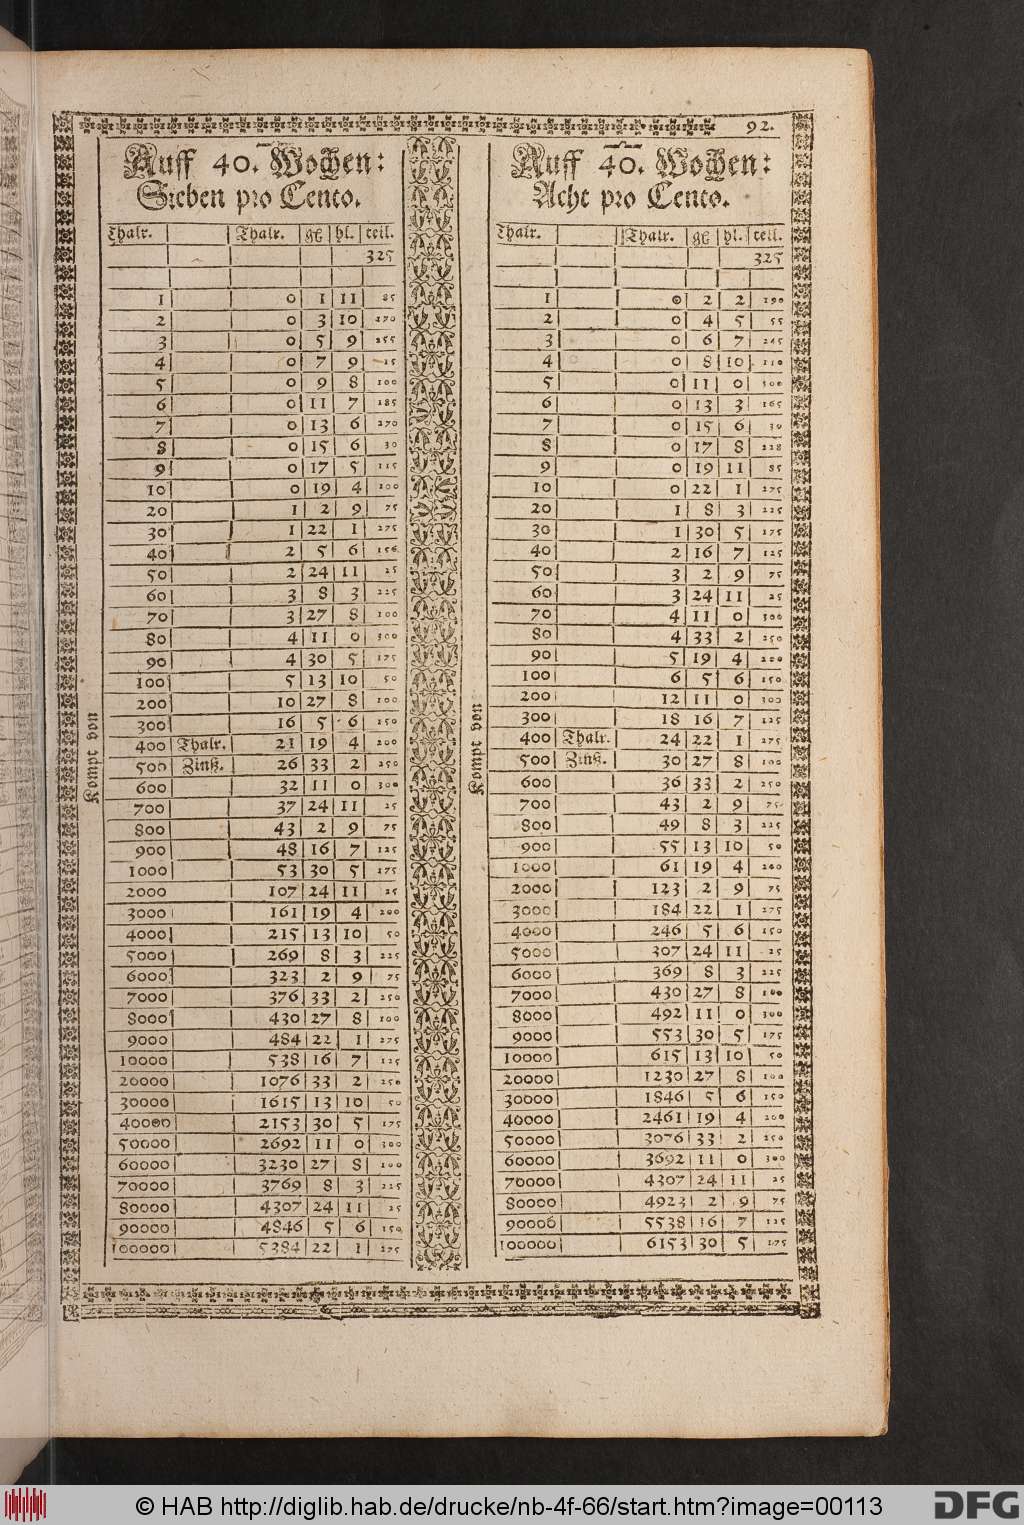 92.
Auff 40. Wochen:
Sieben pro Cento.
Thalr. Thalr. gß hl. teil.
325
1 0 1 11 85
2 0 3 10 170
3 0 5 9 255
4 0 7 9 15
5 0 9 8 100
6 0 11 7 185
7 0 13 6 270
8 0 15 6 30
9 0 17 5 115
10 0 19 4 200
20 1 2 9 75
30 1 22 1 275
40 2 5 6 150
50 2 24 11 25
60 3 8 3 225
70 3 27 8 100
80 4 11 0 300
90 4 30 5 175
100 5 13 10 50
200 10 27 8 100
300 16 5 6 150
400 Thalr. 21 19 4 200
500 Zinß. 26 33 2 250
600 32 11 0 300
700 37 24 11 25
800 43 2 9 75
900 48 16 7 125
1000 53 30 5 175
2000 107 24 11 25
3000 161 19 4 200
4000 215 13 10 50
5000 269 8 3 225
6000 323 2 9 75
7000 376 33 2 250
8000 430 27 8 100
9000 484 22 1 275
10000 538 16 7 125
20000 1076 33 2 250
30000 1615 13 10 50
40000 2153 30 5 175
50000 2692 11 0 300
60000 3230 27 8 100
70000 3769 8 3 225
80000 4307 24 11 25
90000 4846 5 6 150
100000 5384 22 1 275
Kompt von
Auff 40. Wochen:
Acht pro Cento.
Thalr. Thalr. gß hl. teil.
325
1 0 2 2 190
2 0 4 5 55
3 0 6 7 245
4 0 8 10 110
5 0 11 0 300
6 0 13 3 165
7 0 15 6 30
8 0 17 8 228
9 0 19 11 85
10 0 22 1 275
20 1 8 3 225
30 1 30 5 175
40 2 16 7 125
50 3 2 9 75
60 3 24 11 25
70 4 11 0 300
80 4 33 2 250
90 5 19 4 200
100 6 5 6 150
200 12 11 0 300
300 18 16 7 125
400 Thalr. 24 22 1 275
500 Zinß. 30 27 8 100
600 36 33 2 250
700 43 2 9 75
800 49 8 3 225
900 55 13 10 50
1000 61 19 4 200
2000 123 2 9 75
3000 184 22 1 275
4000 246 5 6 150
5000 307 24 11 25
6000 369 8 3 225
7000 430 27 8 100
8000 492 11 0 300
9000 553 30 5 175
10000 615 13 10 50
20000 1230 27 8 100
30000 1846 5 6 150
40000 2461 19 4 200
50000 3076 33 2 250
60000 3692 11 0 300
70000 4307 24 11 25
80000 4923 2 9 75
90000 5538 16 7 125
100000 6153 30 5 175
Kompt von
© HAB http://diglib.hab.de/drucke/nb-4f-66/start.htm?image=00113
DFG